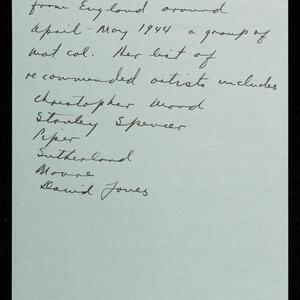 from England around
April - May 1944 a group of
wat col. Her list of
recommended artists includes
Christopher Wood
Stanley Spencer
Piper
Sutherland
Moore
David Jones